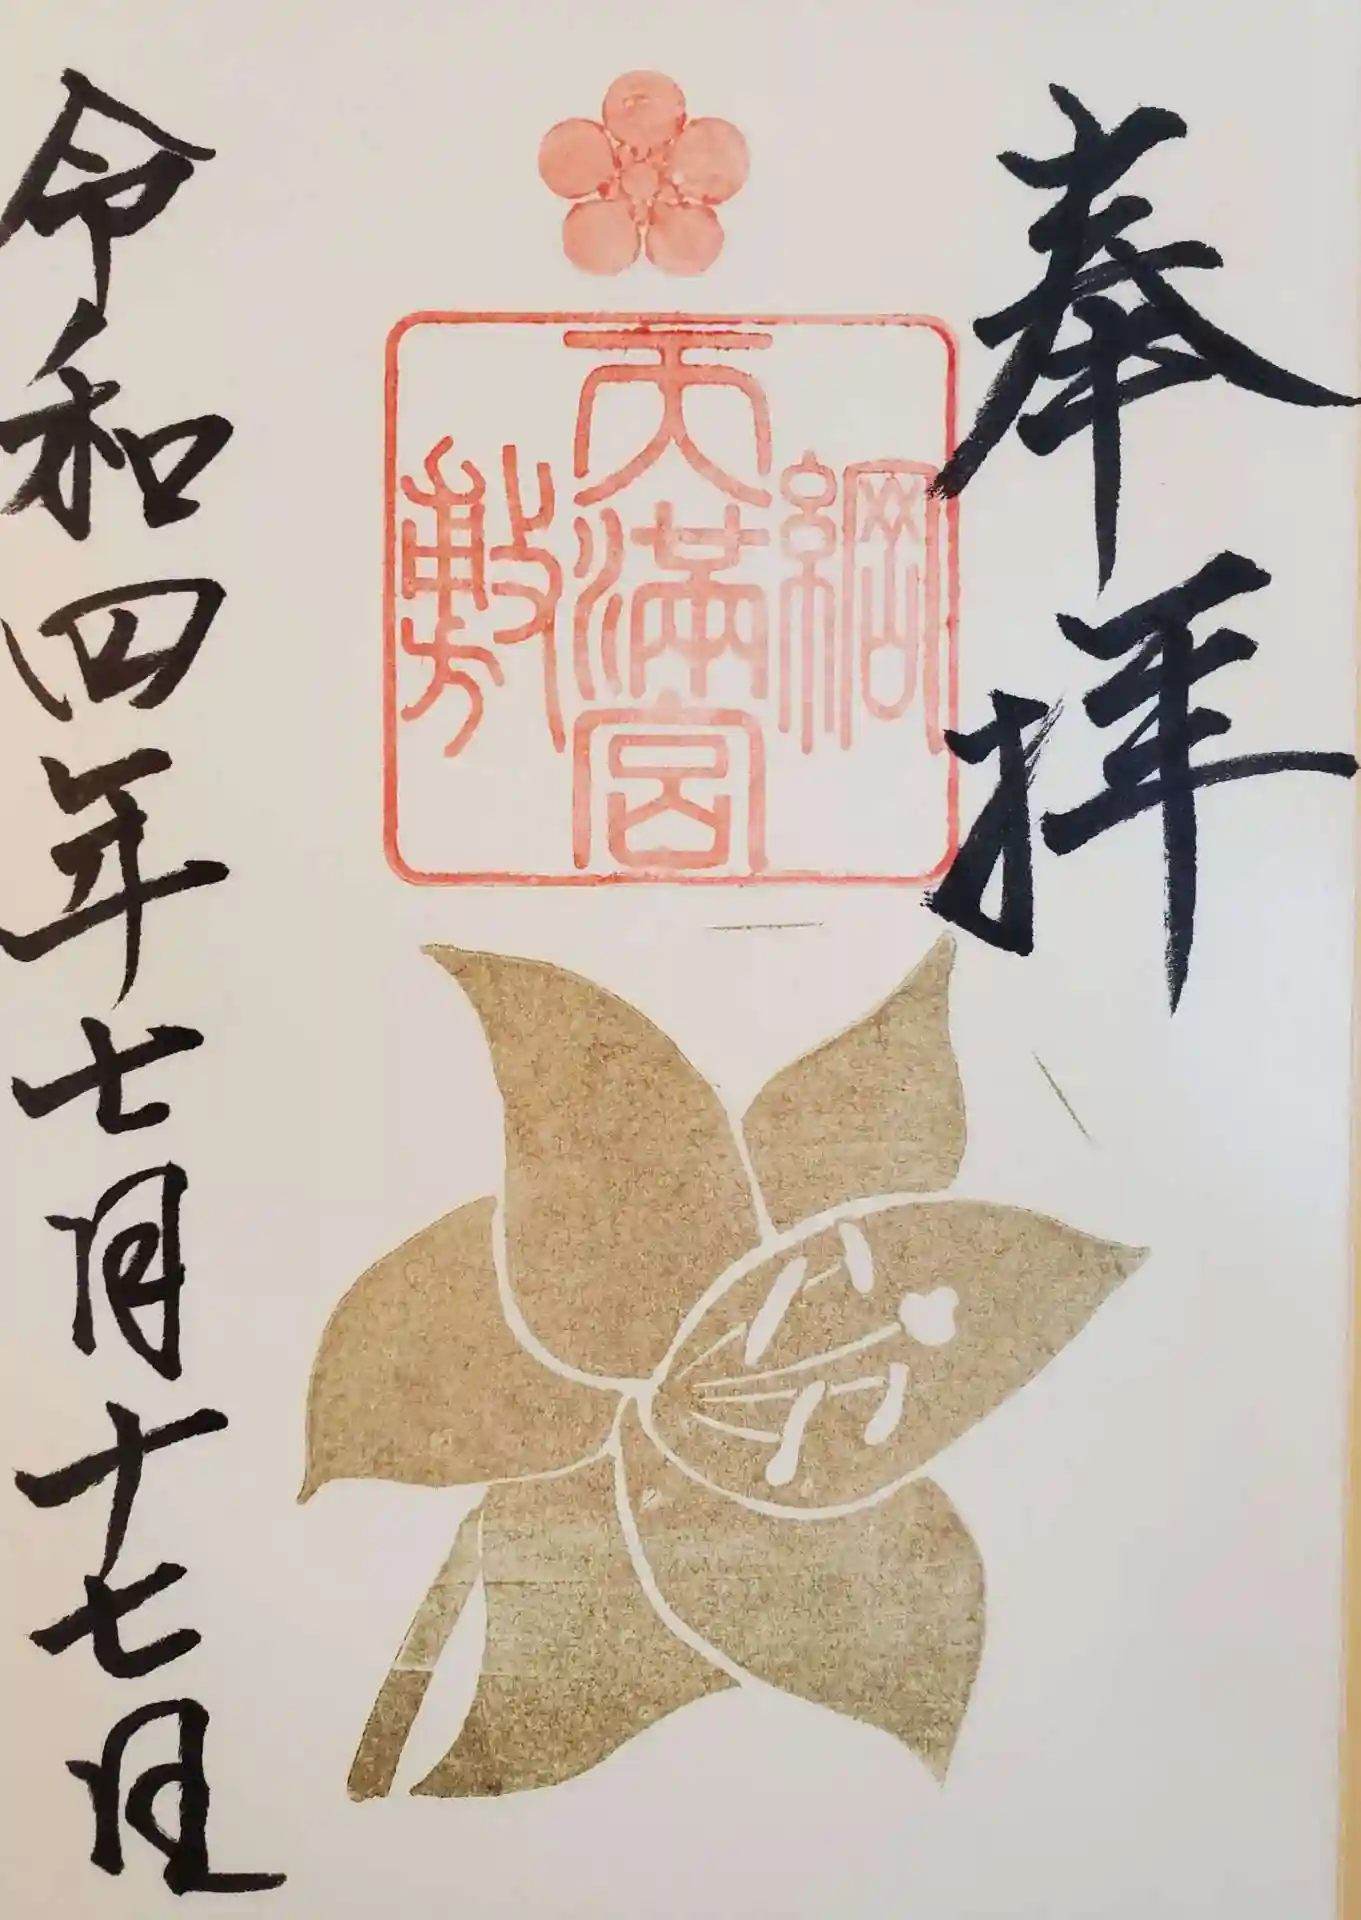 奉拝
綱
天満宮
敷
令和四年七月十七日